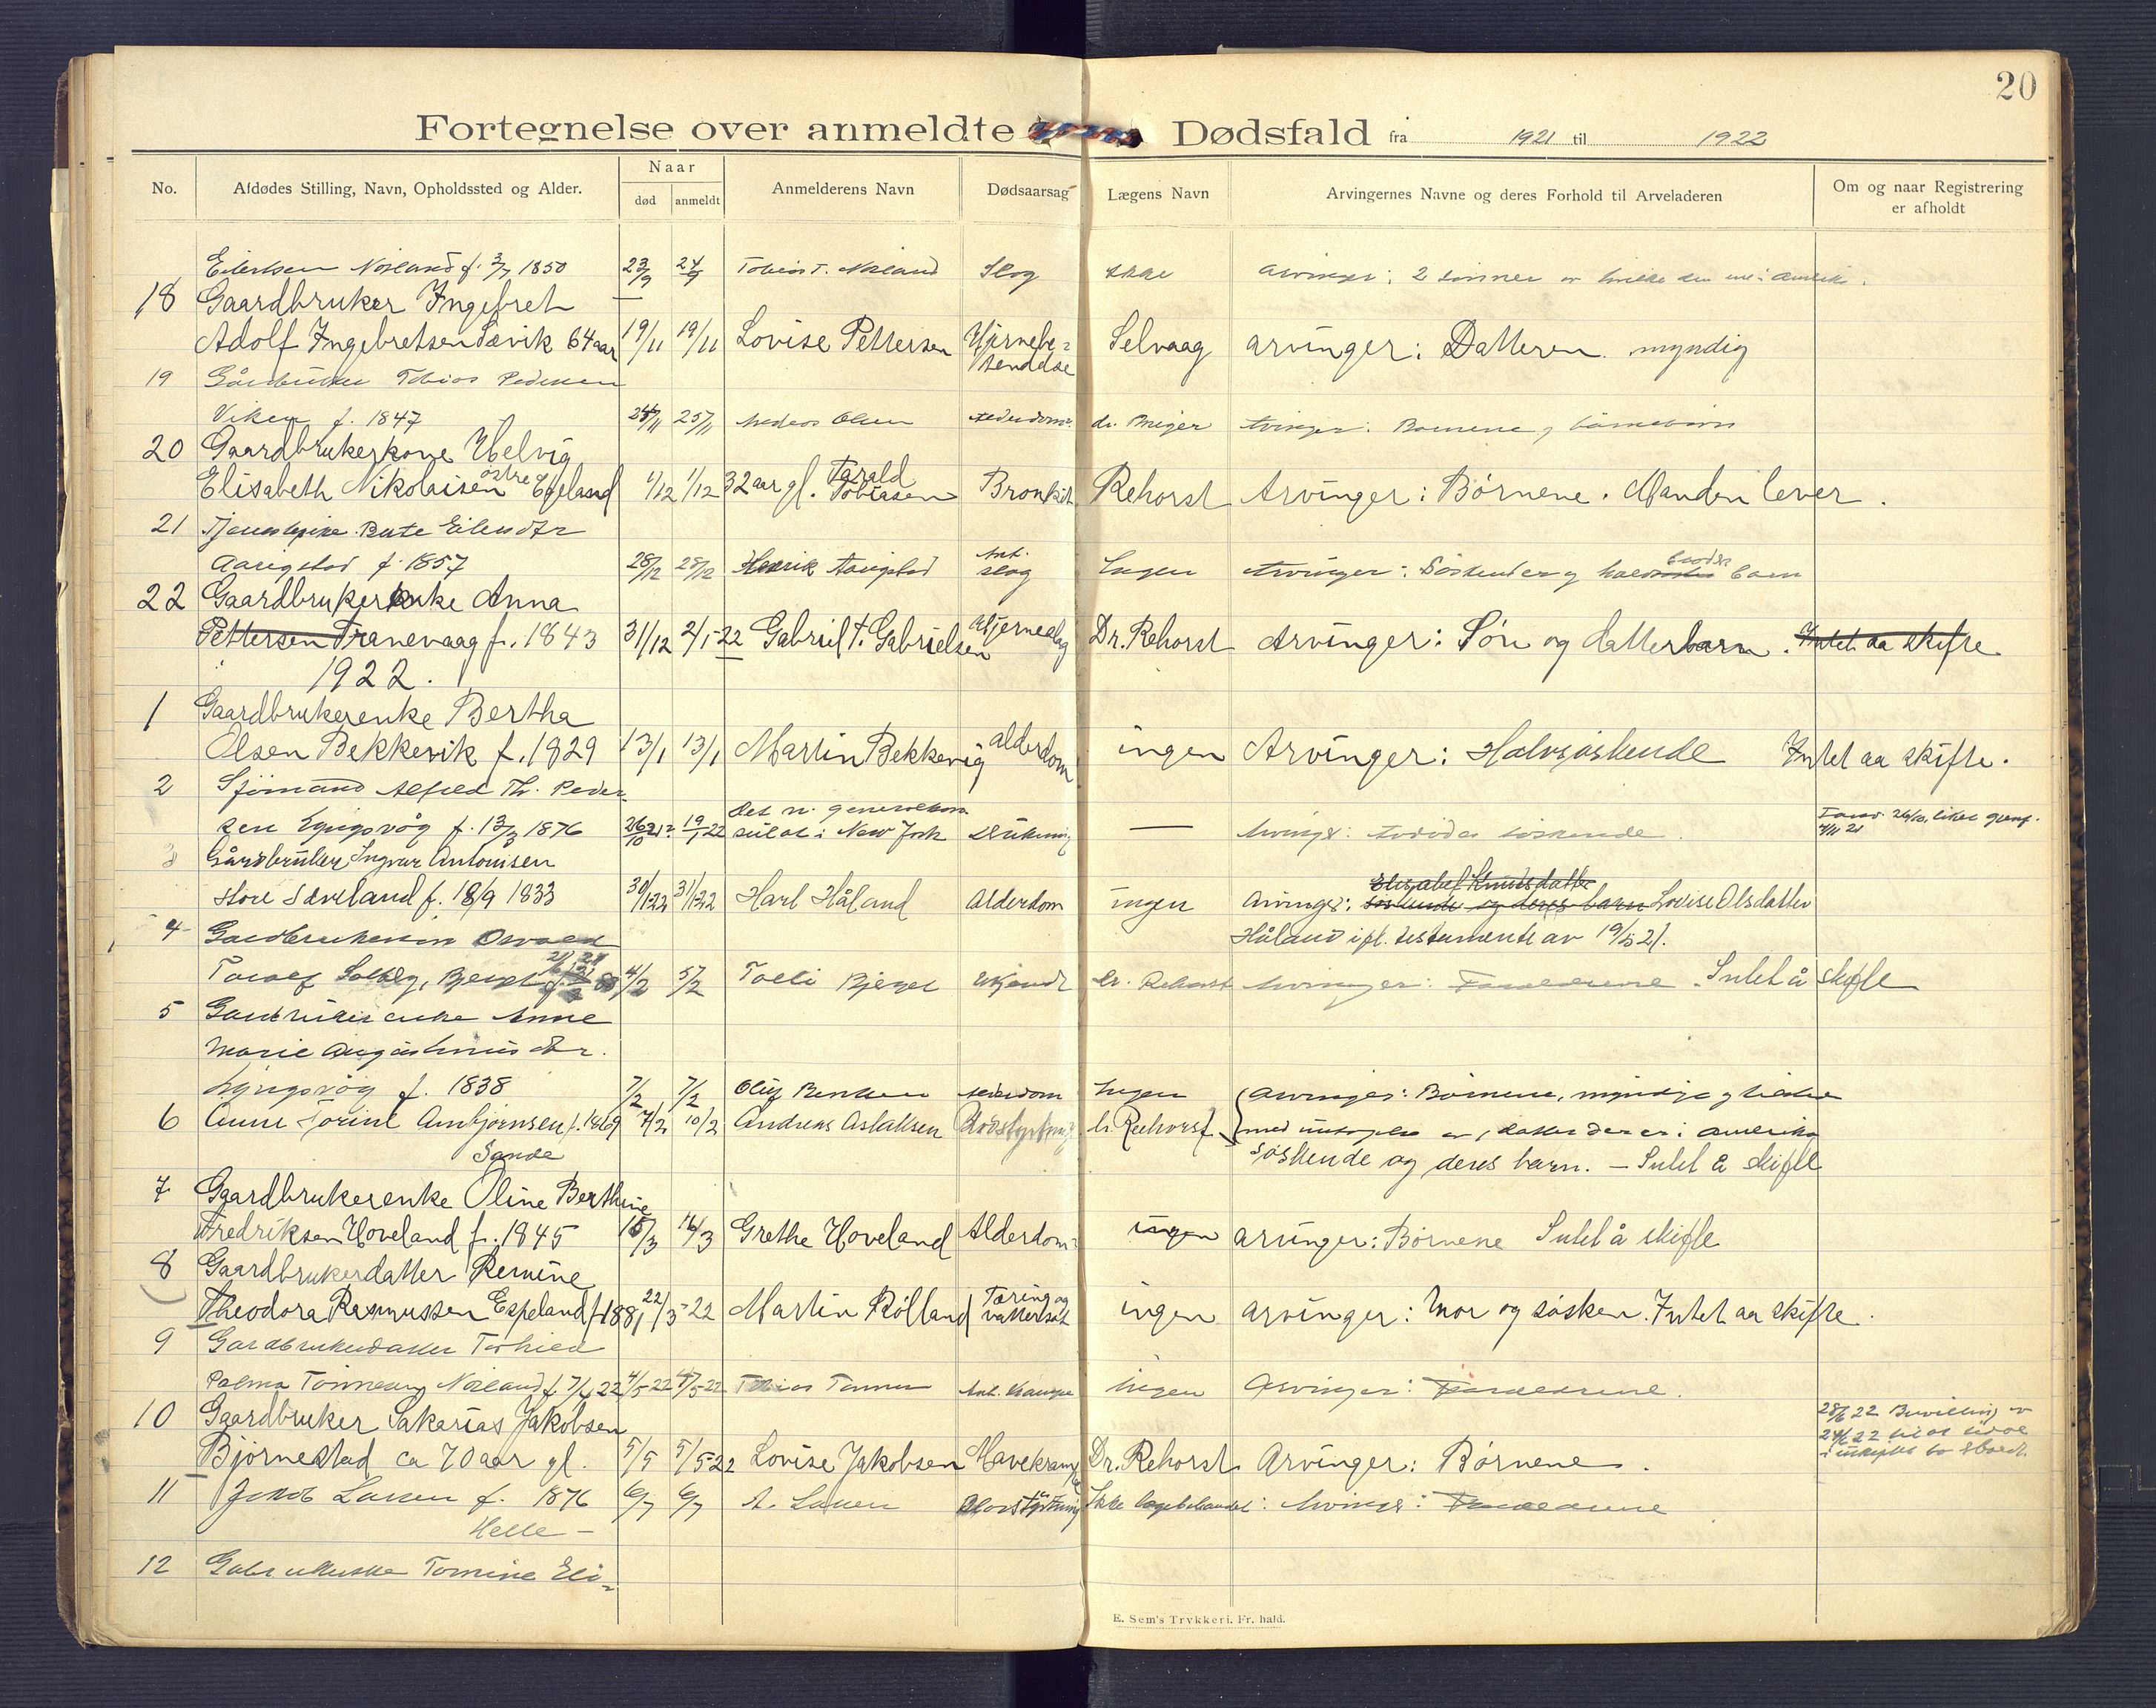 20
Fortegnelse over anmeldte Dødsfald fra 1921 til 1922
No. Afdødes Stilling, Navn, Opholdssted og Alder. Naar død anmeldt Anmelderens Navn Dødsaarsag Lægens Navn Arvingernes Navne og deres Forhold til Arveladeren Om og naar Registrering er afholdt
Eilertsen Nøiland f. 3/7 1850 23/9 24/9 Tobias T. Nøiland Slag Ikke Arvinger: 2 sønner av hvilke den ene i Amerika.
18 Gaardbruker Ingebret
Adolf Ingebretsen Sævik 64 aar 19/11 19/11 Lovise Pettersen Hjernebe= Selvaag arvinger: Datteren. myndig
tendelse
19 Gårdbruker Tobias Pedersen
Viken f. 1847 24/11 25/11 Andreas Olsen Alderdom dr. Arvinger: Børnene og børnebørn
20 Gaardbrukerkone Helvig
Elisabeth Nikolaisen østre Egeland 1/12 1/12 32 aar gl. Tarald Tobiasen Bronkit Rehorst Arvinger: Børnene. Manden lever.
21 Tjenestepike Berte Eilersdtr
Aarigstad f. 1857 28/12 28/12 Henrik Aarigstad Ant. slag Ingen Arvinger: Søskende og halvbrødres barn
22 Gaardbrukerenke Anna
Pettersen Tranevaag f. 1843 31/12 2/1-22 Gabriel T. Gabrielsen Hjerneslag Dr. Rehorst Arvinger: Søn og datterbarn. Intet aa skifte
1922.
1 Gaardbrukerenke Bertha
Olsen Bekkevik f. 1829 13/1 13/1 Martin Bekkevig alderdom ingen Arvinger: Halvsøskende Intet aa skifte.
2 Sjømand Alfred Th. Peder-
sen Lyngsvåg f. 13/3 1876 26/10 21? 19/1 22 Det n. generalkon sulat i New York Drukning — Arvinger: Avdødes søskende.
3 Gårdbruker Ingvar Antonisen
Store Sæveland f. 18/9 1833 30/1-22 31/1-22 Karl Håland Alderdom ingen Arvinger: Elisabet Knudsdatter Søskende og deres barn Lovise Olsdatter
Håland ifl. testamente av 19/5 21.
4 Gardbrukersøn Osvald
Toralf Solberg, Bjerget 4/2 5/2 Tolli Bjerget Ukjendt Dr. Rehorst Arvinger: Forældrene. Intet å skifte
5 Gardbruker enke Anne
Marie Augustinusdtr.
Lyngsvåg f. 1838 7/2 7/2 Oluf Alderdom Ingen Arvinger: Børnene, myndige og tilstede
6 Anne Torine Arnbjørnsen f. 1869 7/2 10/2 Andreas Aslaksen Blodstyrtning Dr. Rehorst med undtagelse av 1 datter der er i Amerika
Sande Søskende og deres barn. - Intet å skifte
7 Gaardbrukerenke Oline Berthine
Fredriksen Hoveland f. 1845 15/3 16/3 Grethe Hoveland Alderdom ingen arvinger: Børnene Intet å skifte
8 Gaardbrukerdatter Remine
Theodora Rasmussen Espeland f. 1881 22/3-22 Martin Rølland Tæring og vattersot ingen arvinger: Mor og søsken. Intet aa skifte.
9 Gardbrukerdatter Torhild
Palma Tønnessen Nøiland f. 7/4 22 4/5 22 4/5-22 Tobias Tønnes Ant. krampe Ingen Arvinger: Forældrene.
10 Gaardbruker Sakarias Jakobsen
Bjørnestad ca 70 aar gl. 5/5 5/5-22 Lovise Jakobsen Mavekramp Dr. Rehorst Arvinger: Børnene. 28/6 22 Bevilling av 24/6 22
11 Jakob Larsen f. 1876 6/7 6/7 A. Larsen Blodstyrtning Ikke lægebehandlet: Arvinger: Forældrene
Helle -
12 Gabrukerske Tomine Eli=
E. Sem's Trykkeri. Fr. hald.